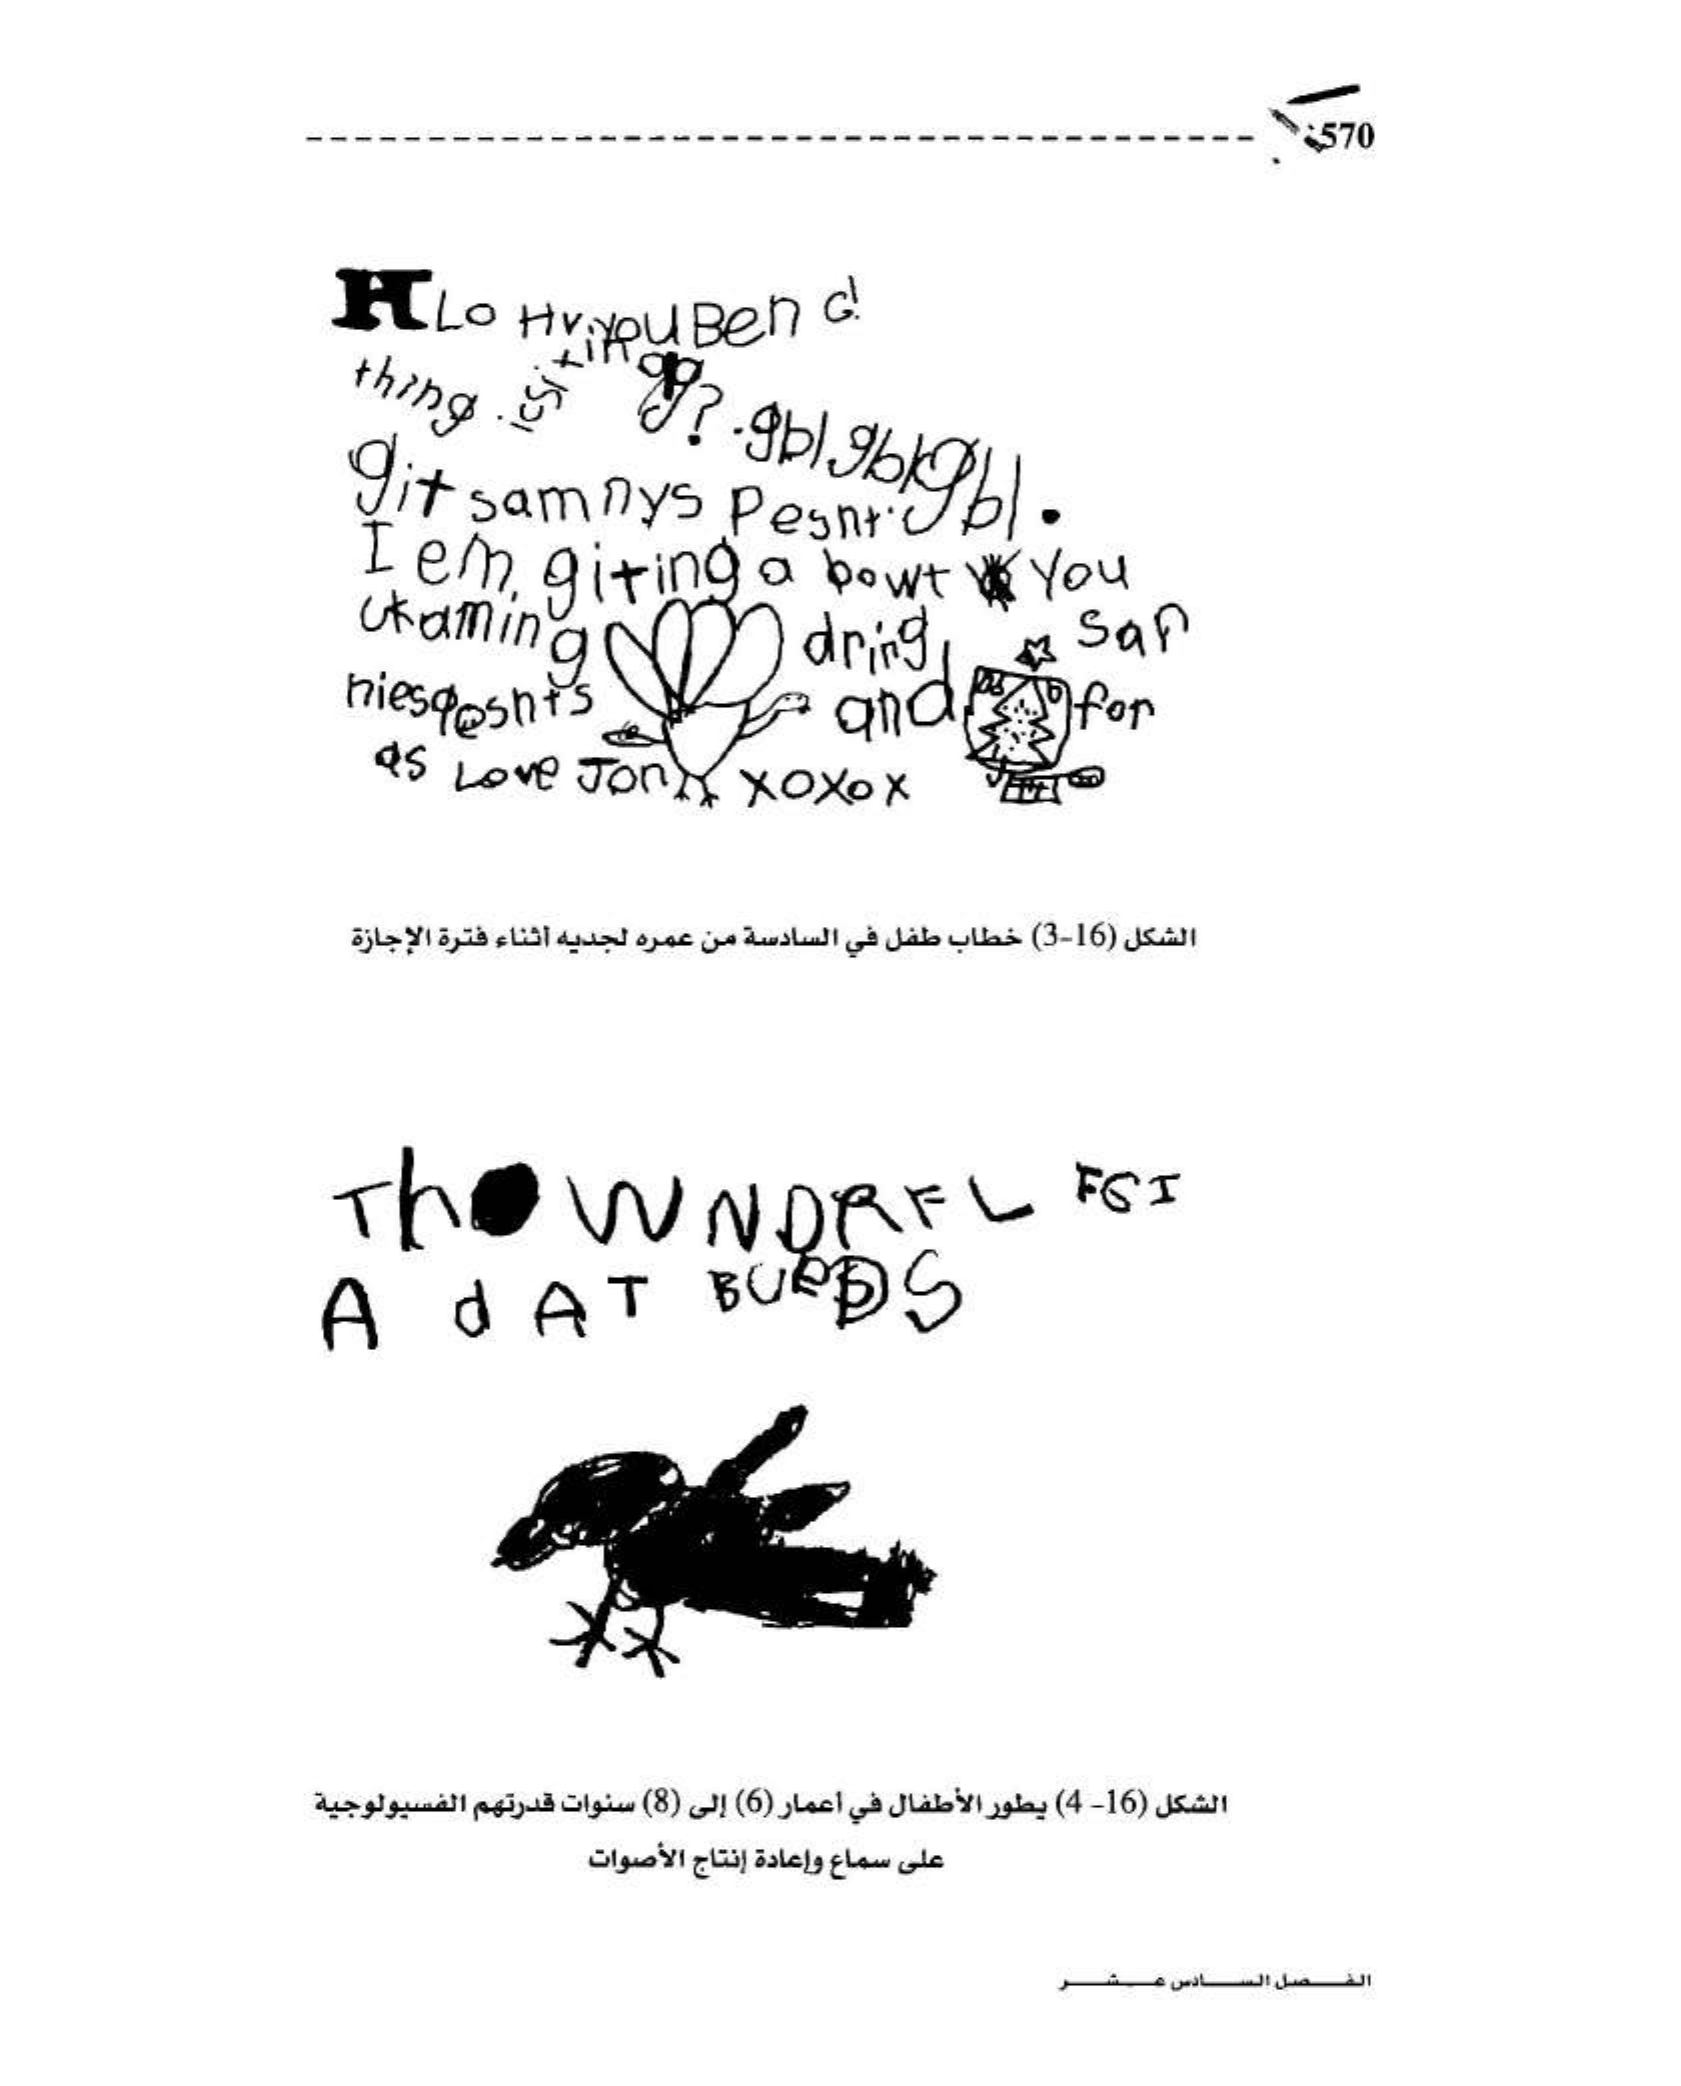 570
HLO Hv you Ben G
thing. is it ing? .gbl gbl gbl.
git sam nys Pesnt
I em giting a bowt You
ckaming dring San
nies peshts and for
as Love Jon xoxox
الشكل (16-3) خطاب طفل في السادسة من عمره لجديه أثناء فترة الإجازة
Th WNDRFL FGI
A d A T BURDS
الشكل (16- 4) يطور الأطفال في أعمار (6) إلى (8) سنوات قدرتهم الفسيولوجية
على سماع وإعادة إنتاج الأصوات
الفصل السادس عشر